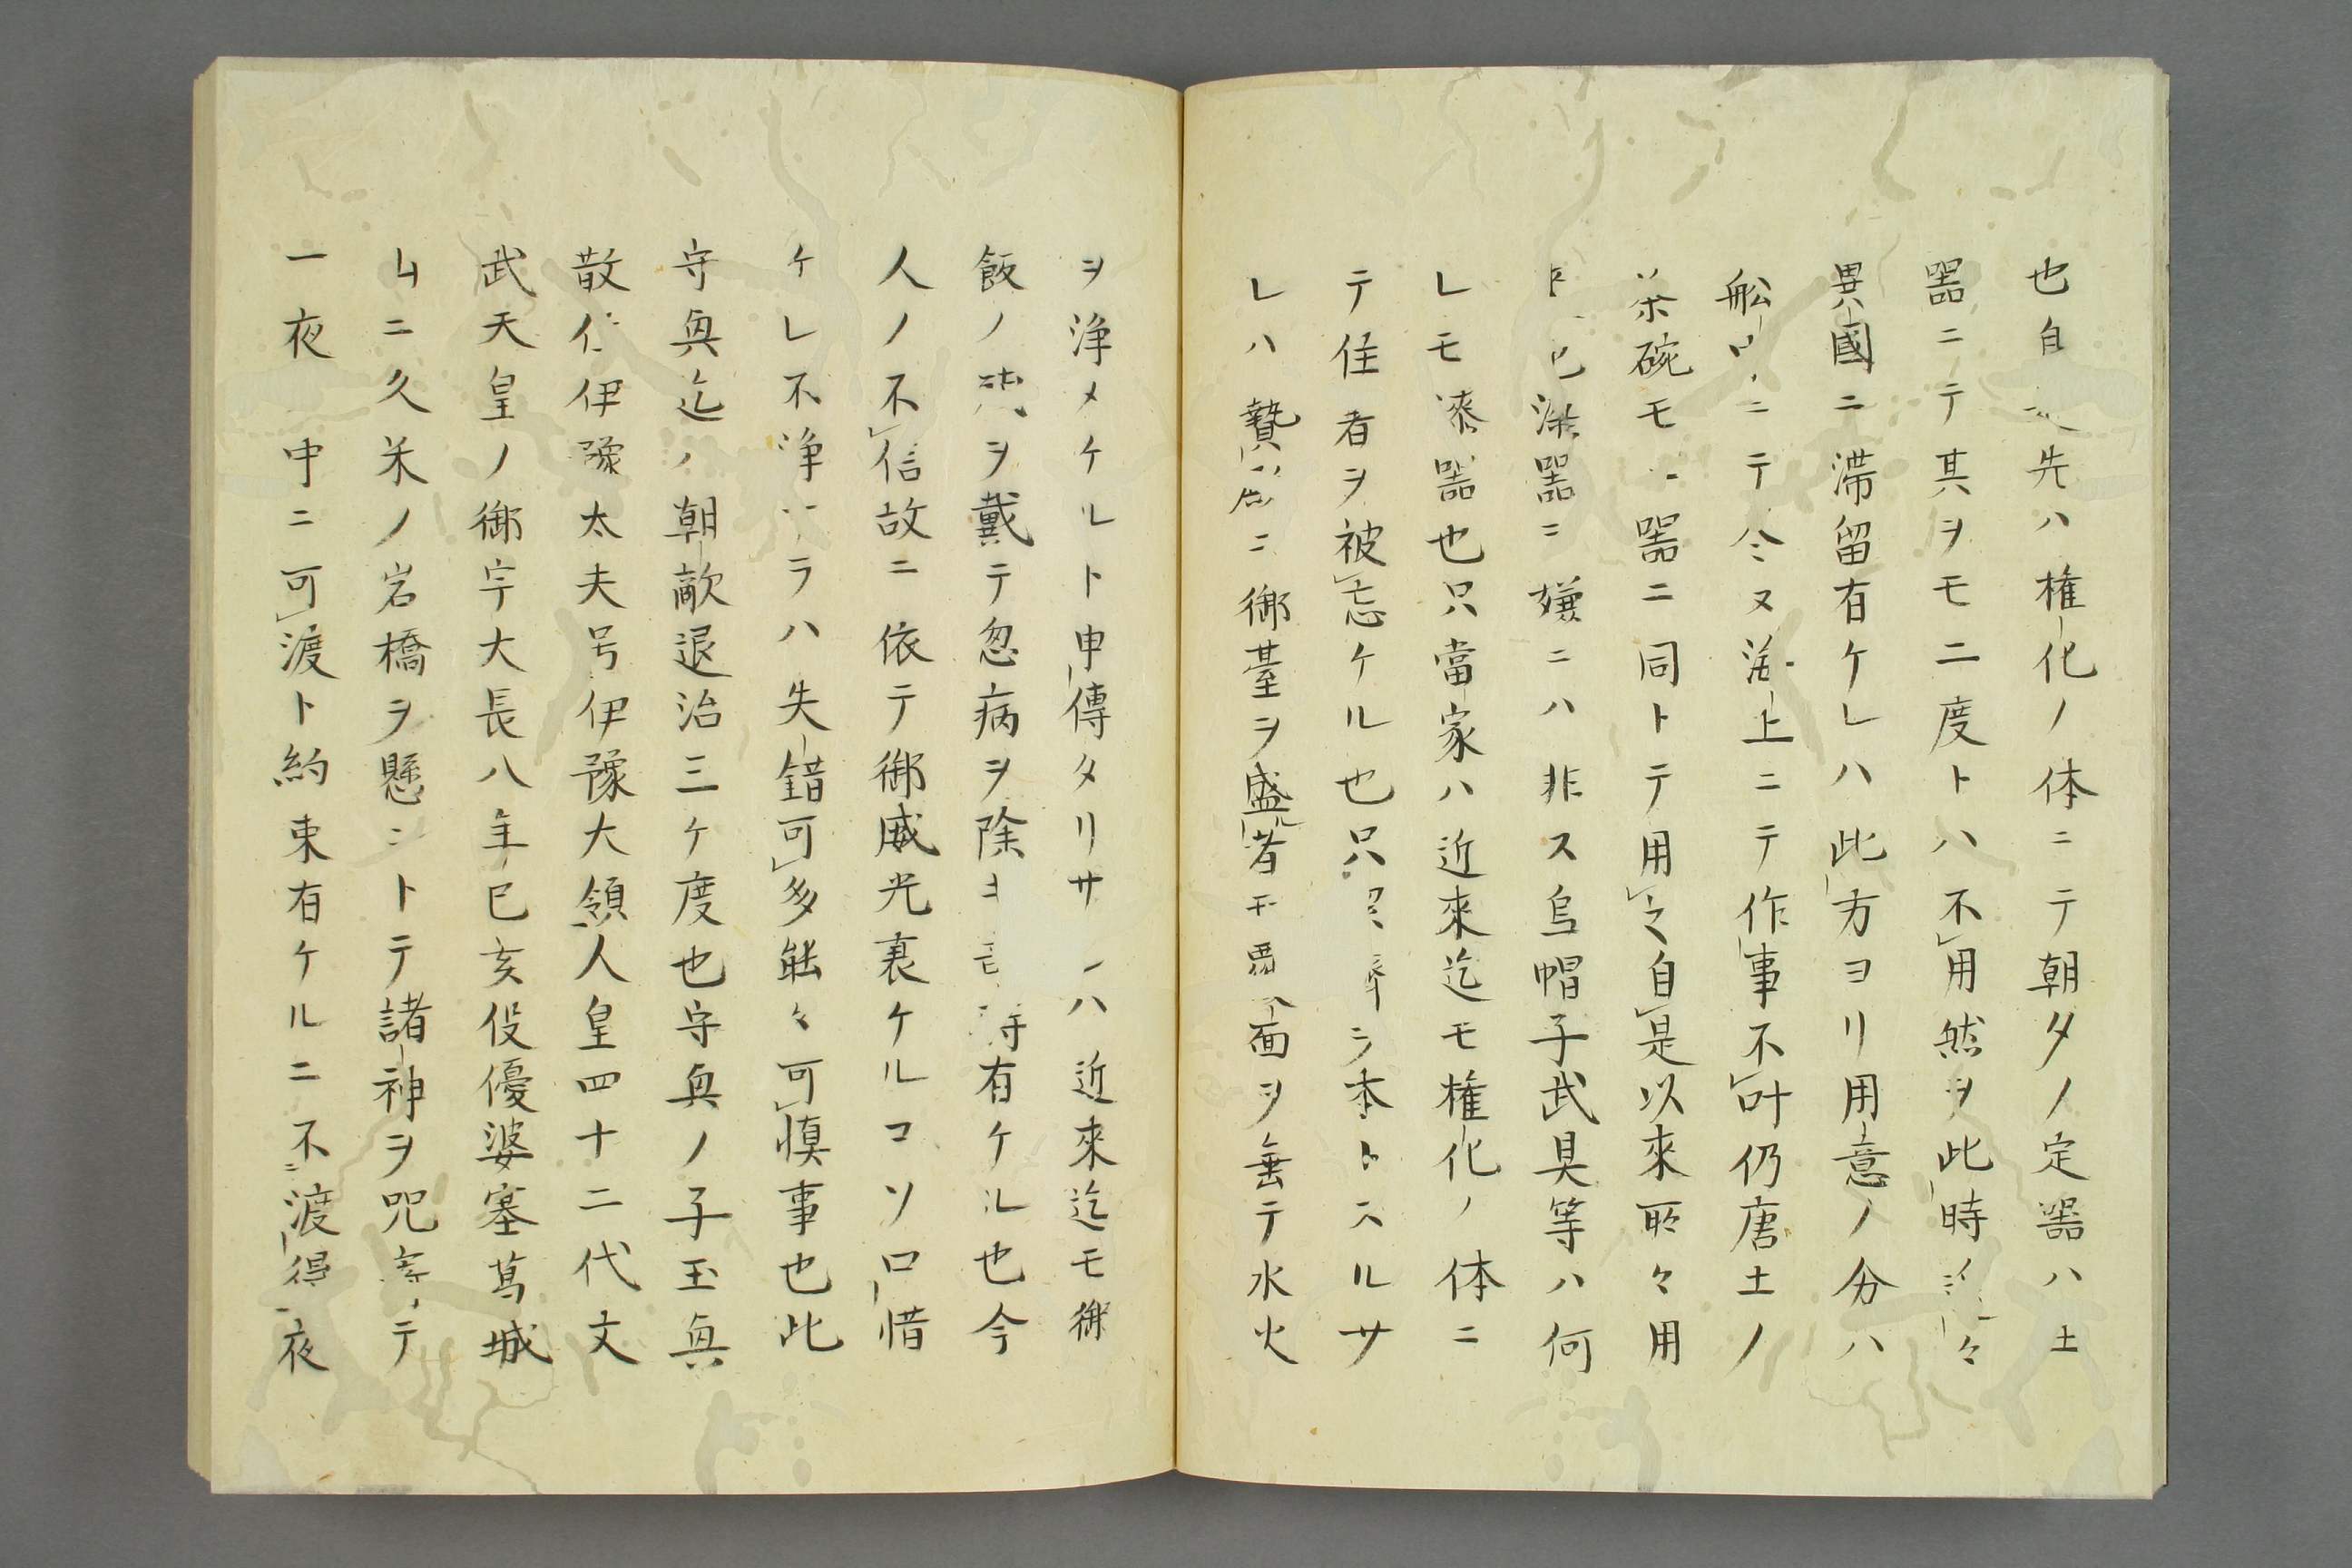 也自先ハ権化ノ体ニテ朝夕ノ定器ハ土
器ニテ其ヲモ二度トハ不用然ヲ此時々
異國ニ滞留有ケレハ此方ヨリ用意ノ分ハ
舩ニテ尽又海上ニテ作事不叶仍唐土ノ
茶碗モ器ニ同トテ用之自是以来所々用
漆器ニ嫌ニハ非ス烏帽子武具等ハ何
レモ漆器也只當家ハ近來迄モ権化ノ体ニ
テ住者ヲ被忘ケル也只ラ本トスルサ
レハ贄ニ御基ヲ盛者面ヲ垂テ水火
ヲ浄メケルト申傳タリサハ近來迄モ御
飯ノヲ戴テ忽病ヲ除有ケル也今
人ノ不信故ニ依テ御威光衰ケルコソ口惜
ケレ不浄ラハ失錯可多能々可慎事也此
守興迄ノ朝敵退治三ケ度也守興ノ子玉興
散位伊豫太夫号伊豫大領人皇四十二代文
武天皇ノ御宇大長八年己亥役優婆塞葛城
ムニ久米ノ岩橋ヲ懸ントテ諸神ヲ咒テ
一夜中ニ可渡ト約束有ケルニ不渡得夜